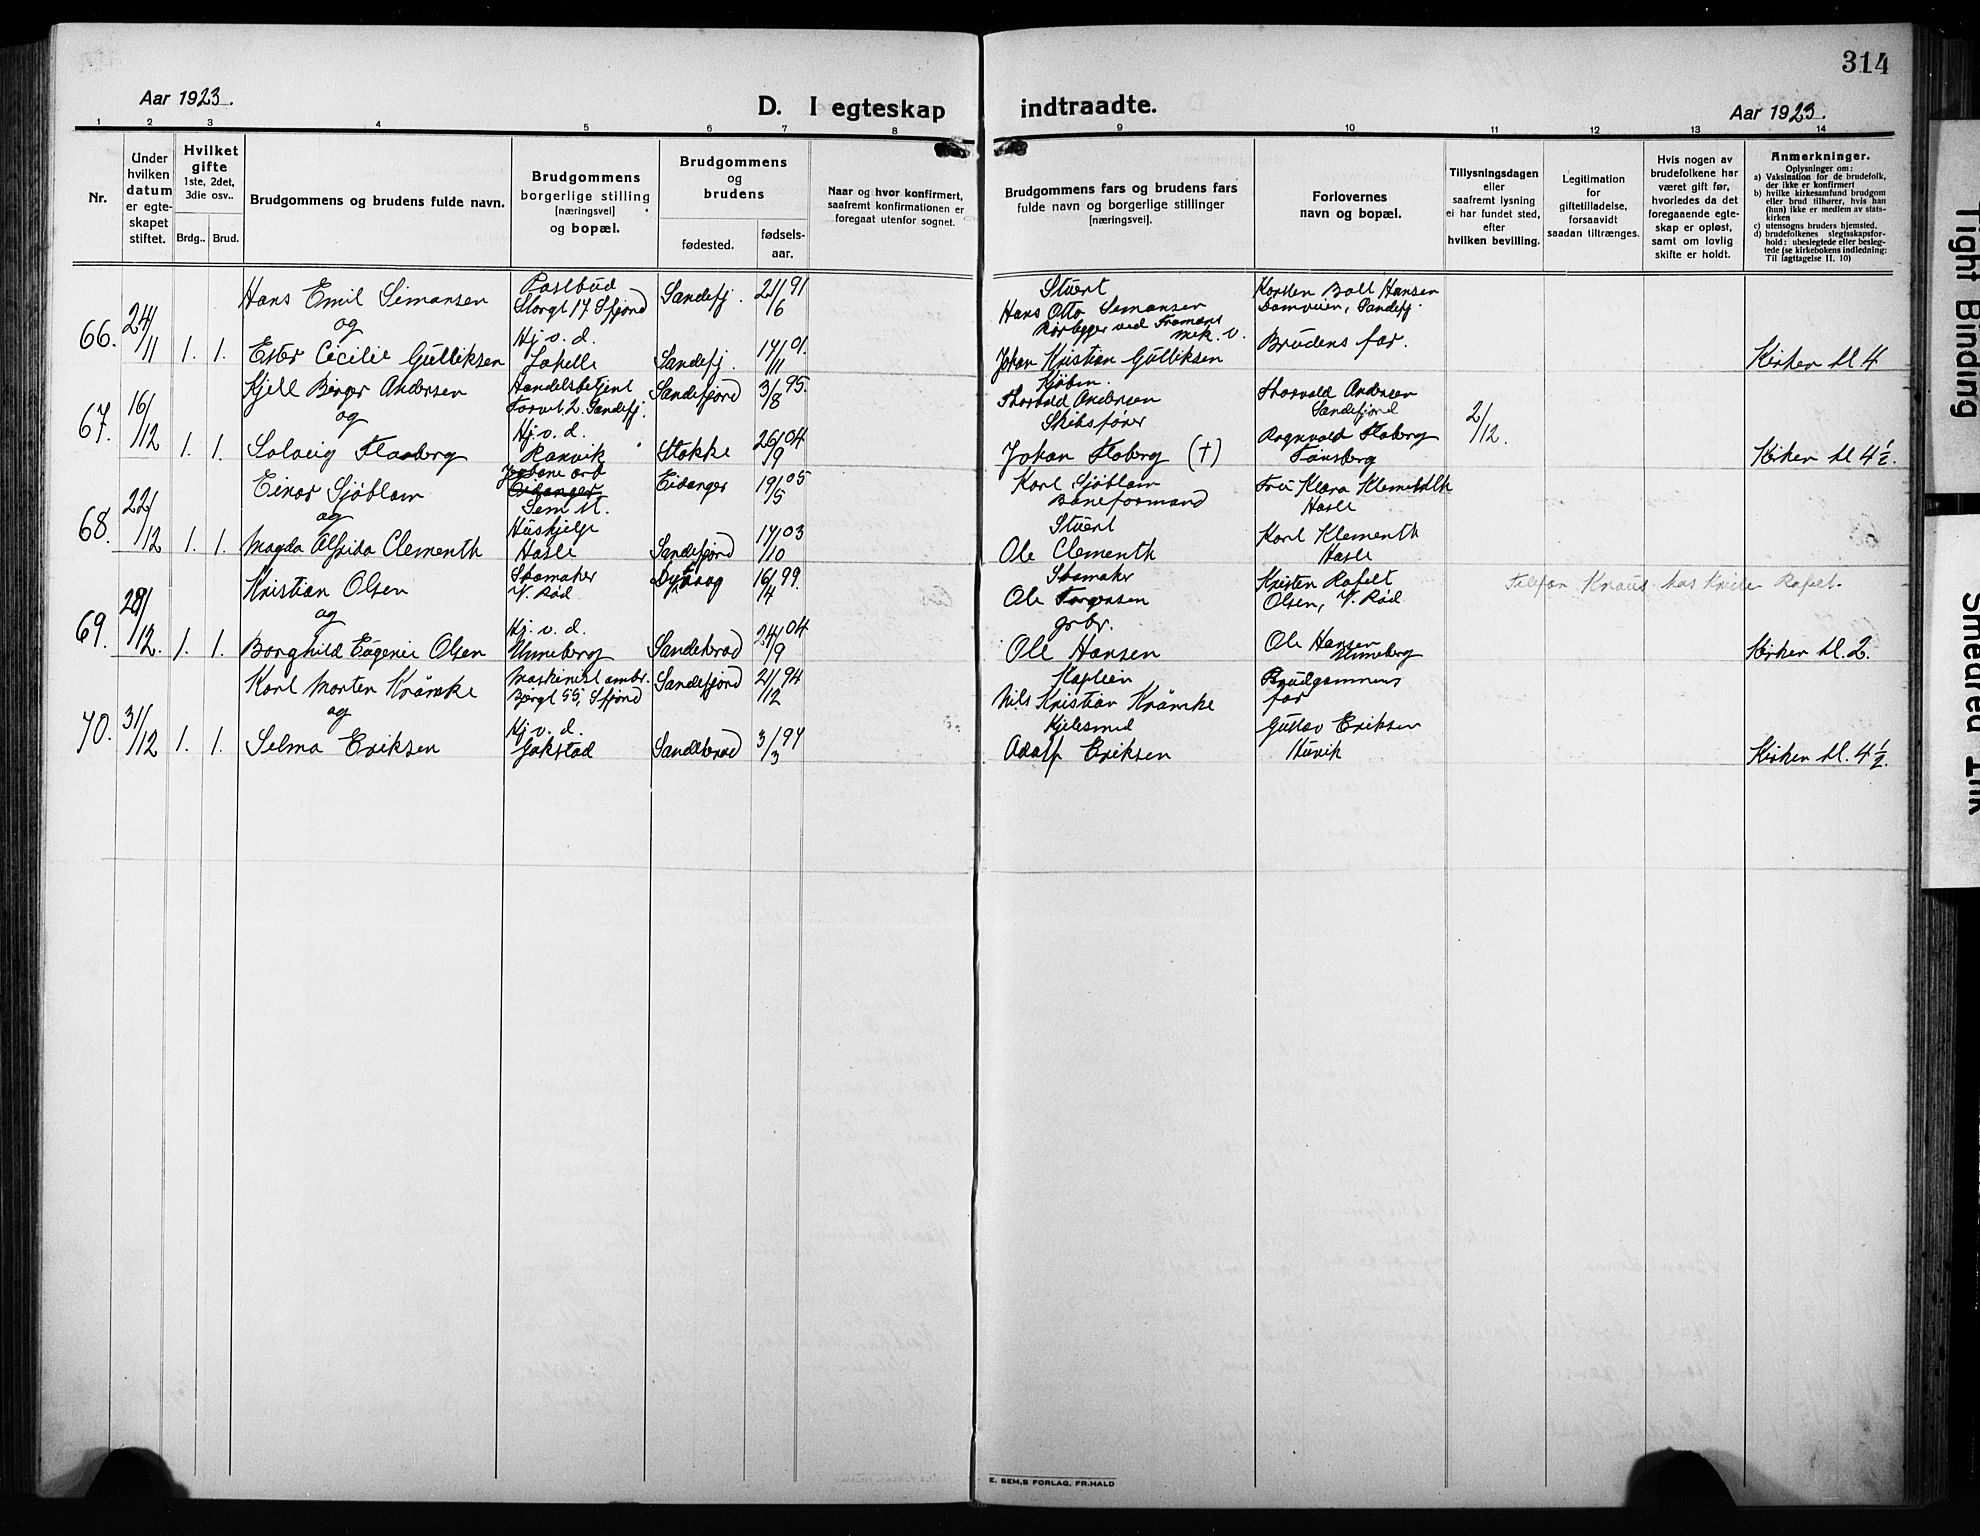 314
Aar 1923.
D. I egteskap indtraadte.
Aar 1923.
1 2 3 4 5 6 7 8 9 10 11 12 13 14
Nr.
Under hvilken datum er egteskapet stiftet.
Hvilket gifte
1ste, 2det, 3die osv..
Brdg.. Brud.
Brudgommens og brudens fulde navn.
Brudgommens borgerlige stilling [næringsvei] og bopæl.
Brudgommens og brudens
fødested.
fødselsaar.
Naar og hvor konfirmert, saafremt konfirmationen er foregaat utenfor sognet.
Brudgommens fars og brudens fars fulde navn og borgerlige stillinger [næringsvei].
Forlovernes navn og bopæl.
Tillysningsdagen eller saafremt lysning ei har fundet sted, efter hvilken bevilling.
Legitimation for giftetilladelse, forsaavidt saadan tiltrænges.
Hvis nogen av brudefolkene har været gift før, hvorledes da det foregaaende egteskap er opløst, samt om lovlig skifte er holdt.
Anmerkninger.
Oplysninger om:
a) Vaksination for de brudefolk, der ikke er konfirmert
b) hvilke kirkesamfund brudgom eller brud tilhører, hvis han (hun) ikke er medlem av statskirken
c) utensogns bruders hjemsted.
d) brudefolkenes slegtsskapsforhold: ubeslegtede eller beslegtede (se kirkebokens indledning: Til iagttagelse II. 10)
66. 24/11 1. 1.
Hans Emil Simonsen
og
Ester Cecilie Gulliksen
Postbud
Storgt 17 Sfjord
Hj. v. d.
Sandefj. 21/6 91
Sandefj. 17/11 01.
Stuert
Hans Otto Simonsen
Rørlegger ved Framnæs mek. v.
Johan Kristian Gulliksen
Karsten Boll Hansen
Sandefj.
Brudens far.
Kirken kl. 4
67. 16/12 1. 1.
Kjell Birger Andersen
og
Solveig Flaaberg
Handelsbetjent
Torvet 2. Sandefj.
Hj. v. d.
Ranvik
Sandefjord 3/8 95.
Stokke 26/9 04
Kjøbm.
Thorvald Andersen
Skibsfører
Johan Floberg (+)
Thorvald Andersen
Sandefjord
Ragnvald Floberg
Tønsberg
2/12.
Kirken kl 4 1/2.
68. 22/12 1. 1.
Einar Sjöblom
og
Magda Alfrida Clementh
Jernbane arb
Eidanger
Sem st.
Hushjelp
Hasle
Eidanger 19/5 05
Sandefjord 17/10 03
Karl Sjöblom
Baneformand
Stuert
Ole Clementh
Fru Klara Klementh
Hasle
Karl Klementh
Hasle
69. 28/12. 1. 1.
Kristian Olsen
og
Borghild Eugenie Olsen
Skomaker
V. Rød
Hj. v. d.
Unneberg
16/4 99.
Sandeherad 24/9 04
Skomaker
Ole Torgersen
grbr.
Ole Hansen
Kristen Rafelt
Olsen, V. Rød
Ole Hansen
Unneberg
Kirken kl. 2.
70. 31/12 1. 1.
Karl Morten Krämke
og
Selma Eriksen
Maskinist ombr.
Bjergt 55, Sfjord
Hj. v. d.
Gokstad
Sandefjord 21/12 94
Sandeherad 3/3 97
Kaptein
Nils Kristian Krämke
Kjelesmed
Adolf Eriksen
Brudgommens
far
Gustav Eriksen
Huvik
Kirken kl. 4 1/2.
E. SEM,S FORLAG, FR.HALD
Tight Binding
Smeared Ink